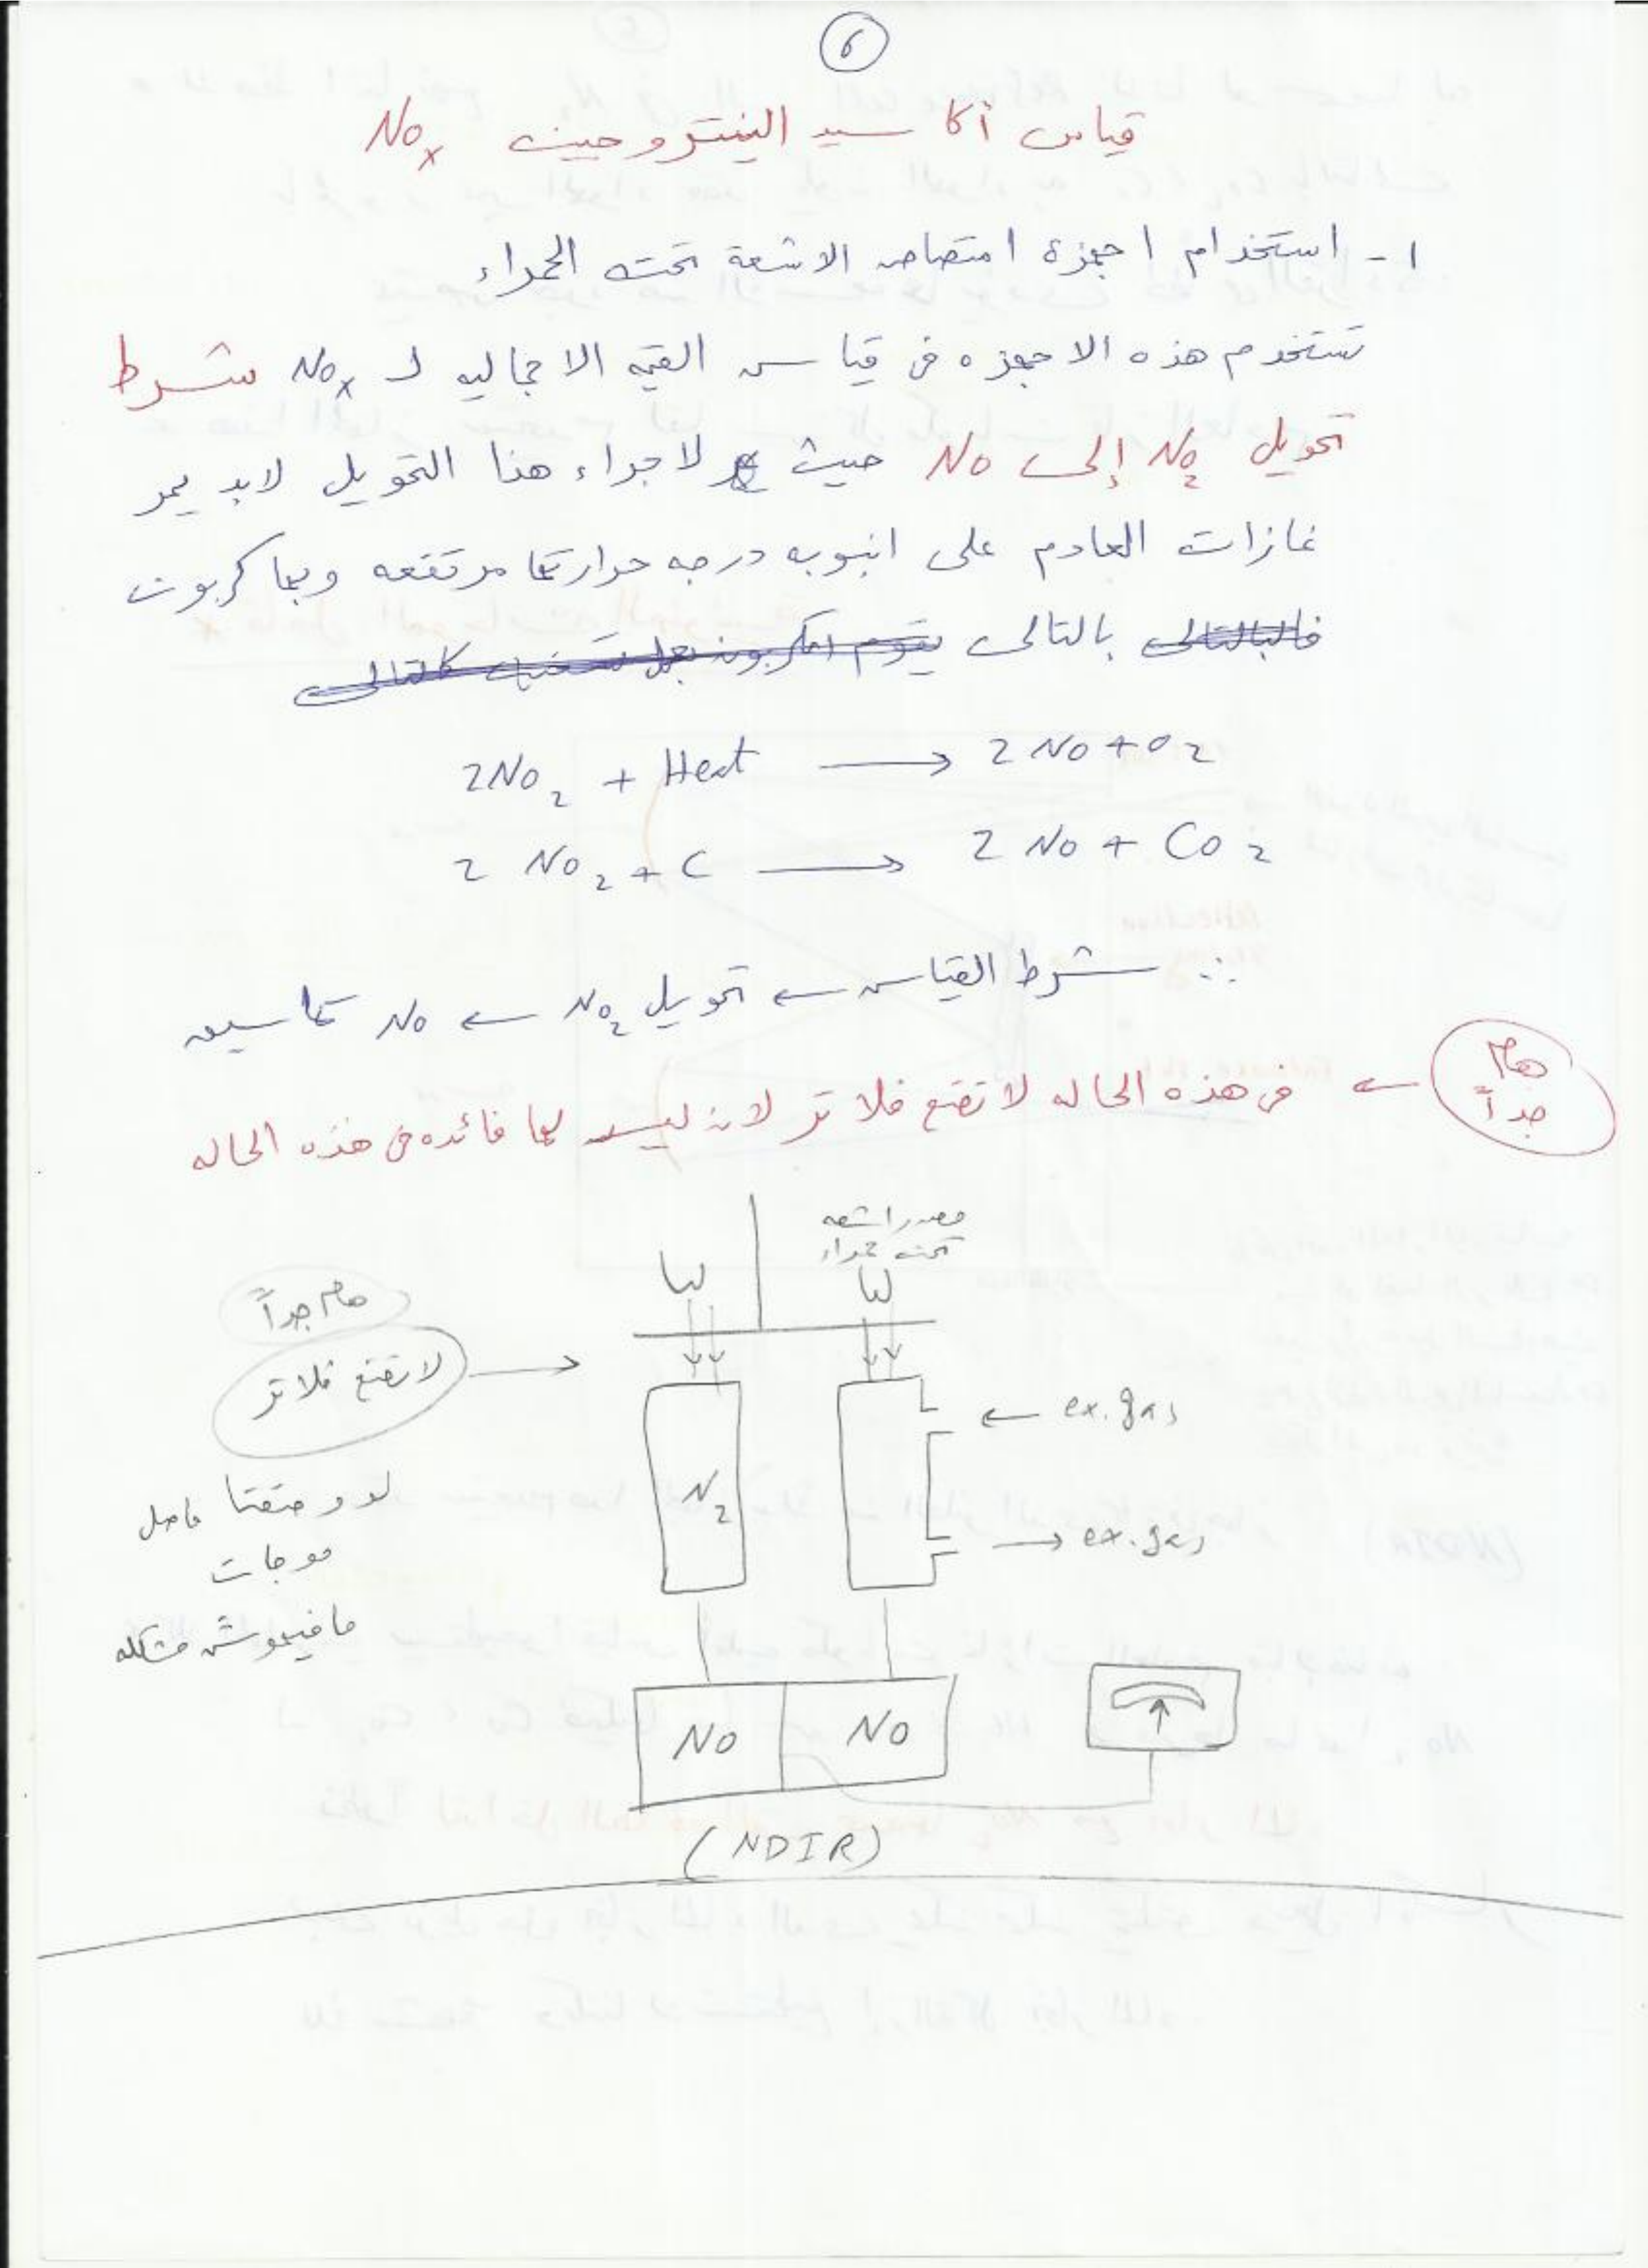 ٦
قياس أكاسيد النيتروجين NOx
١- استخدام اجهزة امتصاص الاشعة تحت الحمراء
تستخدم هذه الاجهزه فى قياس القيمه الاجماليه لـ NOx بشرط
تحويل NO2 إلى NO حيث لاجراء هذا التحويل لابد يمر
غازات العادم على انبوبه درجه حرارتها مرتفعه وبها كربون
فالبالتالى بالتالى يقوم الكربون بعمل كالتالى
2NO2 + Heat → 2NO + O2
2NO2 + C → 2NO + CO2
∴ شرط القياس ← تحويل NO2 ← NO كما سبق
هام جداً ← فى هذه الحاله لا تضع فلاتر لانه ليس لها فائده فى هذه الحاله
مصدر اشعه
تحت حمراء
لمبا
لمبا
هام جداً
لا تضع فلاتر →
← ex. gas
N2
→ ex. gas
لو وضعنا فاصل
موجات
مافيهوش مشكله
NO
NO
(NDIR)